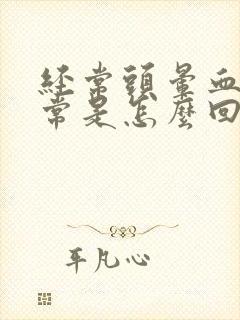 經常頭暈血
常是怎麼回
平凡心